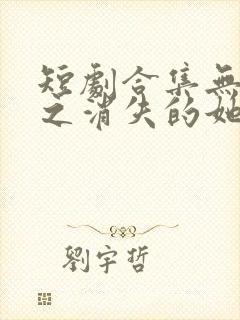 短劇合集無
之消失的她
劉宇哲